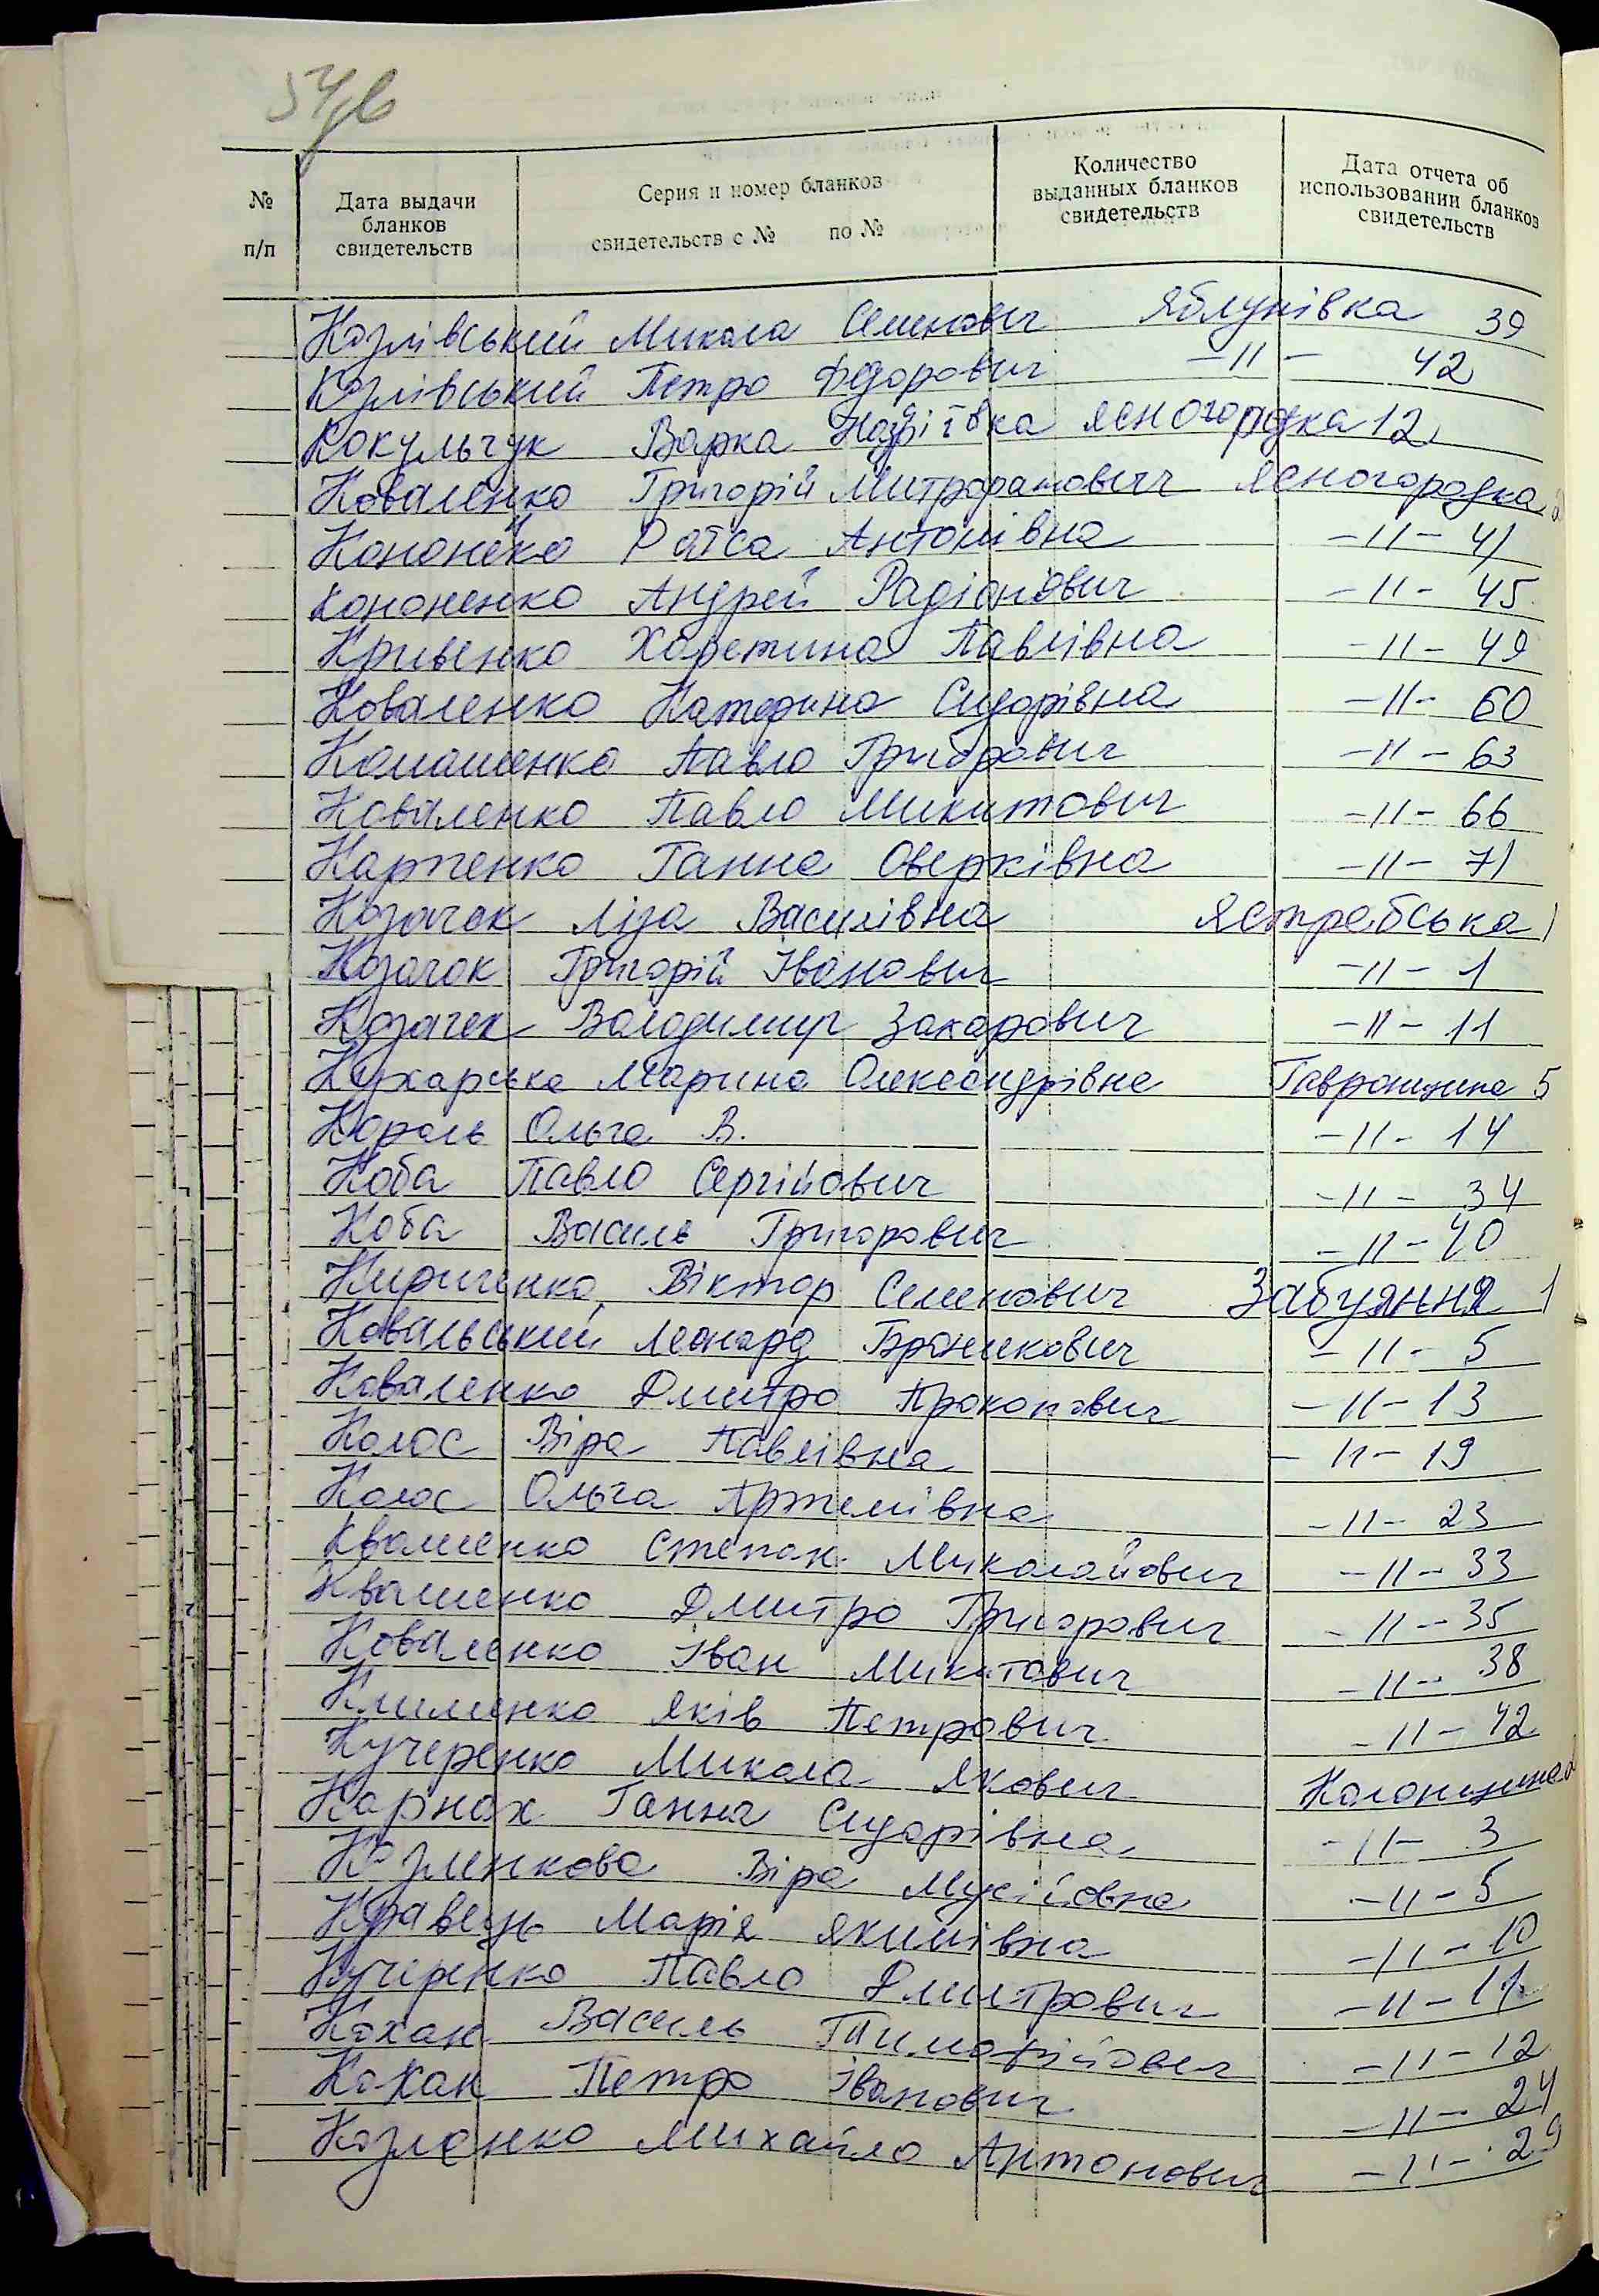 54зв
№ п/п
Дата выдачи бланков свидетельств
Серия и номер бланков свидетельств с № по №
Количество выданных бланков свидетельств
Дата отчета об использовании бланков свидетельств
Козлівський Микола Семенович Яблунівка 39
Козлівський Петро Федорович -11- 42
Кокульчук Варка Андріївка Ясногородка 12
Коваленко Григорій Митрофанович Ясногородка
Кононеко Раїса Антонівна -11- 41
Кононенко Андрей Радіонович -11- 45
Кривенко Харетина Павлівна -11- 49
Коваленко Катерина Сидорівна -11- 60
Комашенко Павло Григорович -11- 63
Коваленко Павло Микитович -11- 66
Карпенко Ганна Оверківна -11- 71
Козачок Ліза Василівна Ястребська 1
Козачок Григорій Іванович -11- 1
Козачек Володимир Захарович -11- 11
Кухарська Марина Олександрівна Гавронщина 5
Король Ольга В. -11- 14
Коба Павло Сергійович -11- 34
Коба Василь Григорович -11- 40
Кириченко Віктор Семенович Забуяння 1
Ковальський Леонард Бронікович -11- 5
Коваленко Дмитро Прокопович -11- 13
Колос Віра Павлівна -11- 19
Колос Ольга Артемівна -11- 23
Квашенко Степан Миколайович -11- 33
Квашенко Дмитро Григорович -11- 35
Коваленко Іван Микитович -11- 38
Клименко Яків Петрович -11- 42
Кучеренко Микола Якович Колонщина
Карнах Ганна Сидорівна -11- 3
Козленкова Віра Мусіївна -11- 5
Кравець Марія Якимівна -11- 10
Кучеренко Павло Дмитрович -11- 11
Кохан Василь Тимофійович -11- 12
Кохан Петро Іванович -11- 24
Козленко Михайло Антонович -11- 29